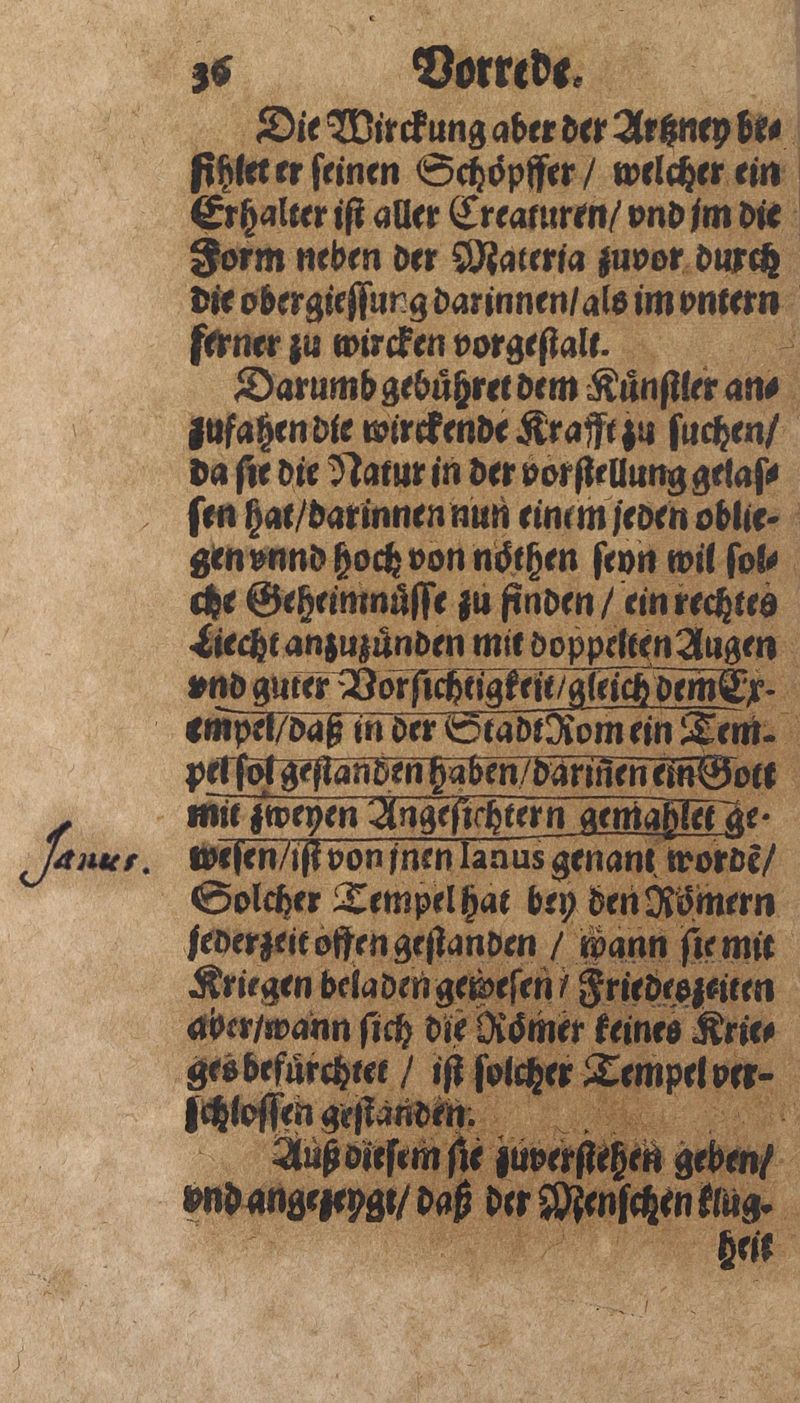 36 Vorrede.
Die Wirckung aber der Artzney be-
fihlet er seinen Schöpffer / welcher ein
Erhalter ist aller Creaturen/ vnd jm die
Form neben der Materia zuvor durch
die obergiessung darinnen/ als im vntern
ferner zu wircken vorgestalt.
Darumb gebühret dem Künstler an-
zufahen die wirckende Krafft zu suchen/
da sie die Natur in der vorstellung gelas-
sen hat/darinnen nun einem jeden oblie-
gen vnnd hoch von nöthen seyn wil sol-
che Geheimnüsse zu finden / ein rechtes
Liecht anzuzünden mit doppelten Augen
vnd guter Vorsichtigkeit/gleich dem Ex-
empel/daß in der Stadt Rom ein Tem-
pel sol gestanden haben/dariñen ein Gott
mit zweyen Angesichtern gemahlet ge-
Janus. wesen/ist von jnen Ianus genant wordẽ/
Solcher Tempel hat bey den Römern
jederzeit offen gestanden / wann sie mit
Kriegen beladen gewesen / Friedeszeiten
aber/wann sich die Römer keines Krie-
ges befürchtet / ist solcher Tempel ver-
schlossen gestanden.
Auß diesem sie zuverstehen geben/
vnd angezeygt/ daß der Menschen klug-
heit